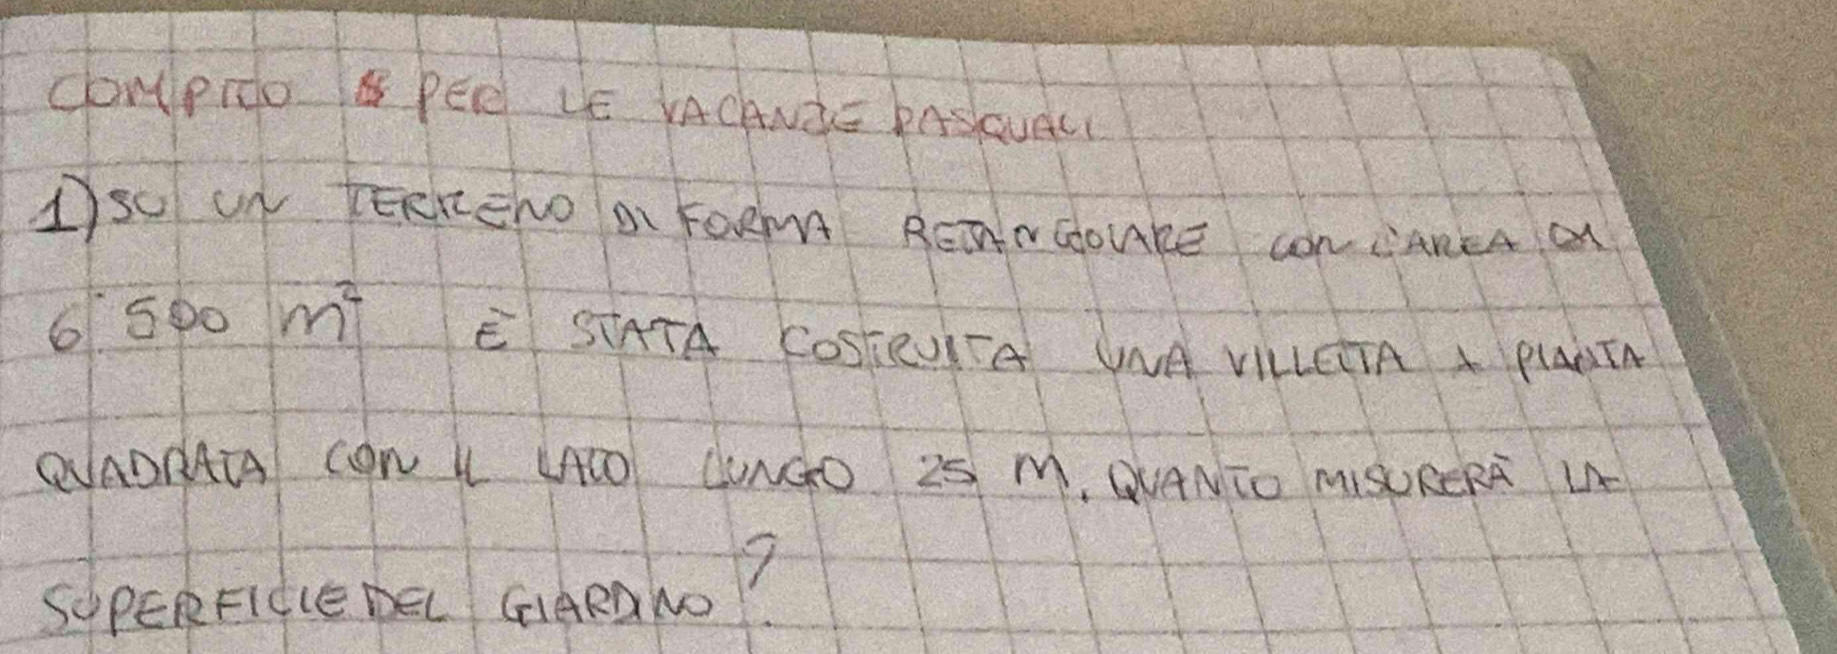 COMPITO PER LE VACANZE PASQUALI
1) SU UN TERRENO DI FORMA RETANGOLARE CON L'AREA DI
6˙500 m² È STATA COSTRUITA UNA VILLETTA A PIANTA
QUADRATA CON IL LATO LUNGO 25 M. QUANTO MISURERÀ LA
SUPERFICIE DEL GIARDINO?